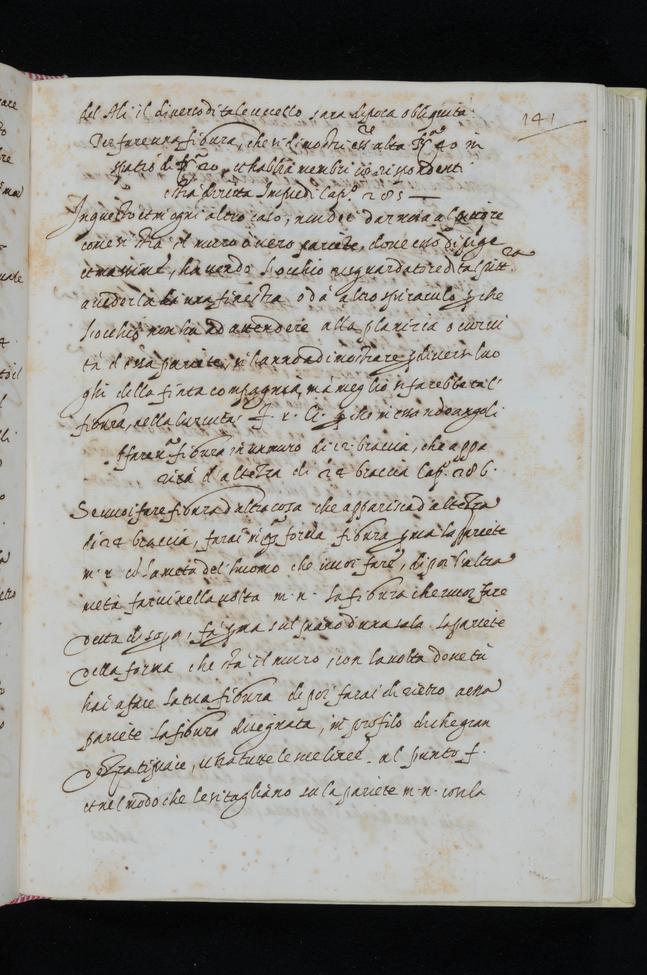 del Ali il diverso di tale uccello sara di poca obliquità
141
Per fare una figura, che si dimostri ess.re alta br.a 40 in
spatio di br.a 20, et habbia membri corrispondenti
e stia diritta In piedi Cap.o 285
In questo et in ogni altro caso, non dee dar noia al pittore
come si stia il muro overo pariete, dove esso dipige
et massime, havendo l'occhio a risguardatore di tal pitt.ra
a vederla da una finestra o da altro spiraculo p che
l'occhio non ha ad attendere alla planitia o curvi
tà d'essa pariete, si hanno a dimostrare p diversi luo
ghi della finta compagnia, ma meglio si farebbe tal'
figura, nella curvità f. r. G. p che non
A farsi.a figura in un muro di 12 braccia, che appa
risca d'altezza di 24 braccia Cap.o 286.
Se vuoi fare figura d'altra cosa che apparisca d'altezza
di 24 braccia, farai in q.sta forma figura p.ma la pariete
m. n. con la metà del huomo che vuoi fare, di poi l'altra
metà farai nella volta m. n. la figura che vuoi fare
detta di sopra, fa p.ma sul piano d'una sala la pariete
della forma che sta il muro, con la volta dove tu
hai a fare la tua figura di poi farai dirietro aessa
pariete la figura disegnata, in profilo di che gran
dezza ti piace, tira tutte le sue linee al punto f.
et nel modo che le si tagliano su la pariete m. n. con la